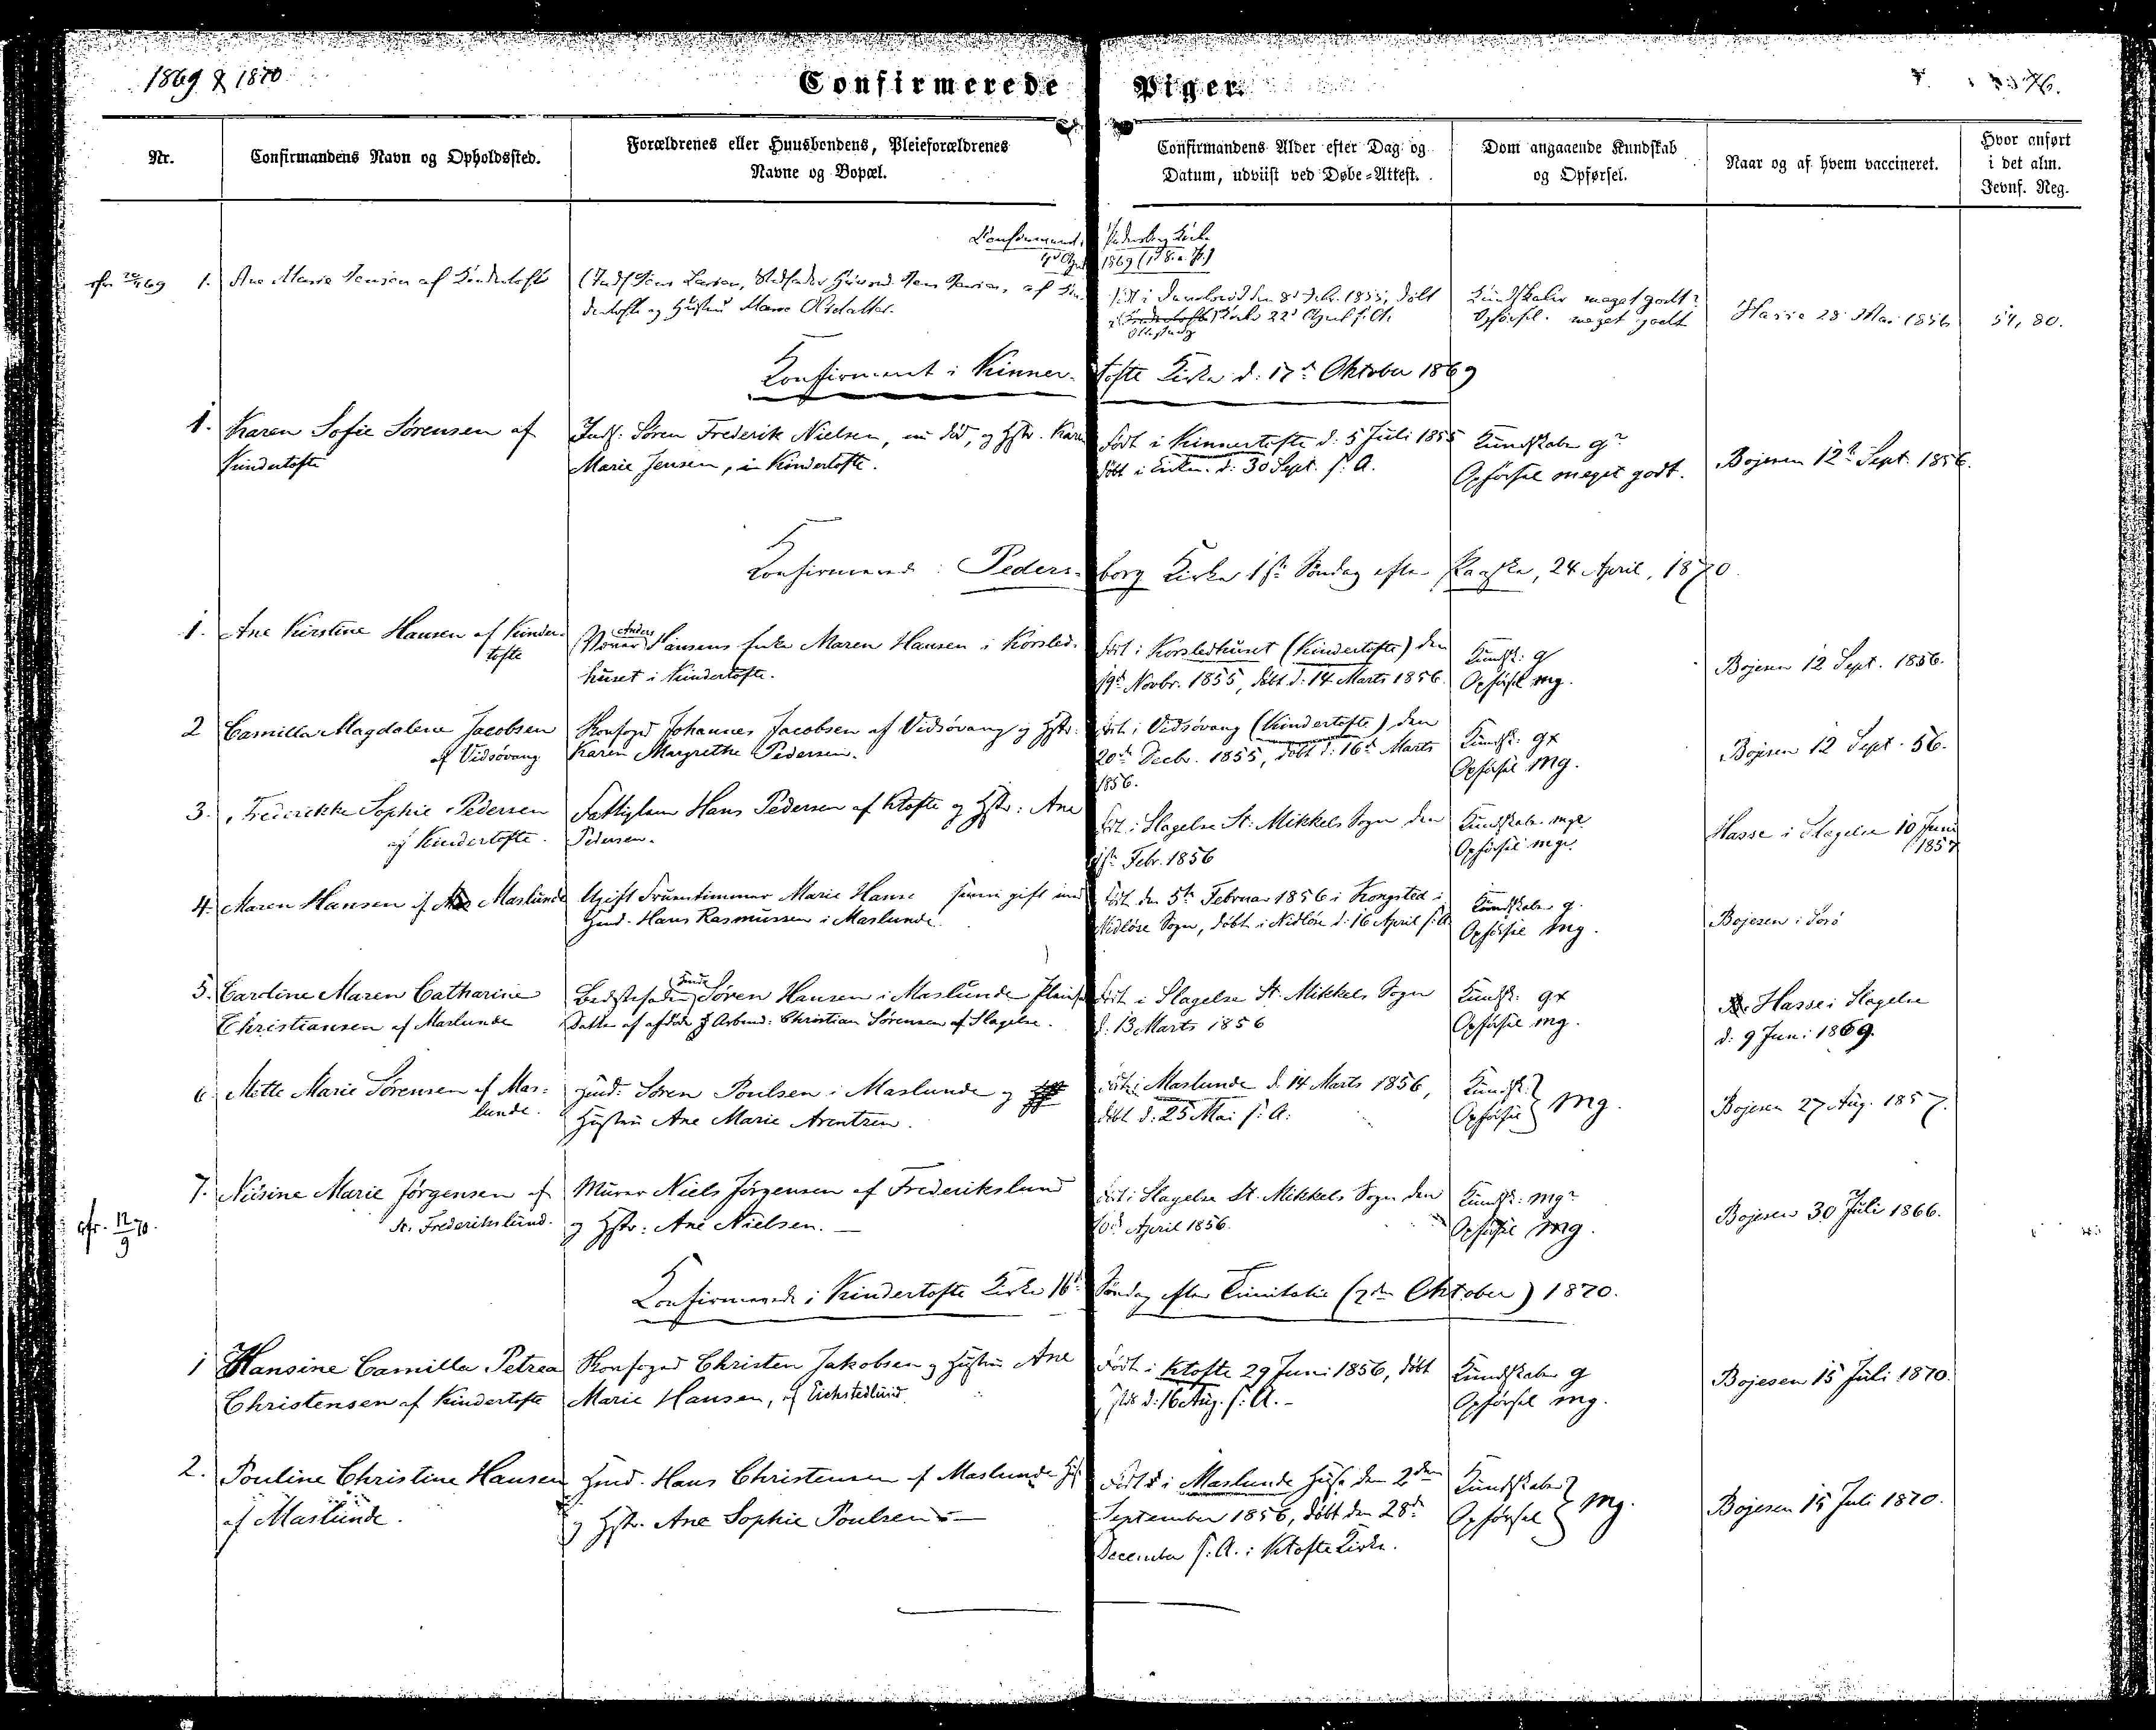 1869 & 1870
Confirmerede Piger.
76.
Nr.
Confirmandens Navn og Opholdssted.
Forældrenes eller Huusbondens, Pleieforældrenes
Navne og Bopæl.
Confirmandens Alder efter Dag og
Datum, udviist ved Døbe-Attest.
Dom angaaende Kundskab
og Opførsel.
Naar og af hvem vaccineret.
Hvor anført
i det alm.
Jevnf. Reg.
Pedersborg Kirke
1869
1. Ane Marie Jensen af Kindertofte
Jens Larsen, Stedfader
dertofte og Hustru Maren Olsdatter.
den 8d Febr. 1855, døbt
Kirke 22d April s. A.
Kundskaber meget godt
Opførsel. meget godt
Hasse 28 Mai 1856
54, 80.
Konfirmeret i Kinnertofte Kirke d: 17d Oktober 1869
1. Karen Sofie Sørensen af
Kindertofte
Inds: Søren Frederik Nielsen, nu død, og Hstr. Karen
Marie Jensen, i Kindertofte.
Født i Kinnertofte d: 5 Juli 1855
døbt i Kirken d: 30 Sept. s. A.
Kundskaber g
Opførsel meget godt.
Bojesen 12t Sept. 1856.
Konfirmered i Pedersborg Kirke 1ste Søndag efter Paaske, 24 April, 1870.
1. Ane Kirstine Hansen af Kindertofte
Anders
Hansens Enke Maren Hansen i Korsledhuset i Kindertofte.
Født i Korsledhuset (Kindertofte) den
19d Novbr. 1855, døbt d. 14 Marts 1856.
Kundsk: g
Opførsel mg.
Bojesen 12 Sept. 1856.
2 Camilla Magdalene Jacobsen
af Vidsøvang
Skovfoged Johannes Jacobsen af Vidsøvang og Hstr:
Karen Margrethe Pedersen.
Født i Vidsøvang (Kindertofte) den
20de Decbr. 1855, døbt d: 16d Marts
1856.
Kundsk: gx
Opførsel mg.
Bojesen 12 Sept. 56.
3. Frederikke Sophie Pedersen
af Kindertofte.
Fattiglem Hans Pedersen af Ktofte og Hstr: Ane
Pedersen.
Født i Slagelse St: Mikkels Sogn den
Febr. 1856
Kundskab. mg
Opførsel mg.
Hasse i Slagelse 10 Juni
1857
4. Maren Hansen af Maslunde
Ugift Fruentimmer Marie Hanse gift med
Hmd. Hans Rasmussen i Maslunde.
Født den 5te Februar 1856 i Kongsted i
Nidløse Sogn, døbt i Nidløse d: 16 April s. A.
Kundskaber g.
Opførsel mg.
Bojesen i Sorø
5. Caroline Maren Catharine
Christiansen af Maslunde
Bedstefader Søren Hansen i Maslunde
Datter af afdøde Arbmd: Christian Sørensen af Slagelse.
Født i Slagelse St. Mikkels Sogn
d. 13 Marts 1856
Kundsk: gx
Opførsel mg.
Hasse i Slagelse
d: 9 Juni 1869.
6. Mette Marie Sørensen af Maslunde.
Søren Poulsen i Maslunde og
Hustru Ane Marie Arentzen.
Født i Maslunde d. 14 Marts 1856,
døbt d: 25 Mai s. A.
Kundsk.
Opførsel } mg.
Bojesen 27 Aug. 1857.
7. Nisine Marie Jørgensen af
St. Frederikslund.
Murer Niels Jørgensen af Frederikslund
og Hstr: Ane Nielsen.
Født i Slagelse St. Mikkels Sogn den
April 1856.
Kundsk: mg
Opførsel mg.
Bojesen 30 Juli 1866.
cfr. 12/9 70.
Konfirmerede i Kindertofte Kirke 16d Søndag efter Trinitatis (2den Oktober) 1870.
1 Hansine Camilla Petrea
Christensen af Kindertofte
Skovfoged Christen Jakobsen og Hustru Ane
Marie Hansen, af Eichstedlund
Født i Ktofte 29 Juni 1856, døbt
d: 16 Aug. s. A.
Kundskaber g
Opførsel mg.
Bojesen 15 Juli 1870.
2. Pouline Christine Hansen
af Maslunde.
Hmd. Hans Christensen af Maslunde
og Hstr. Ane Sophie Poulsen
Født i Maslunde Huse den 2den
September 1856, døbt den 28d
December s. A. i Ktofte Kirke.
Kundskaber
Opførsel } mg.
Bojesen 15 Juli 1870.